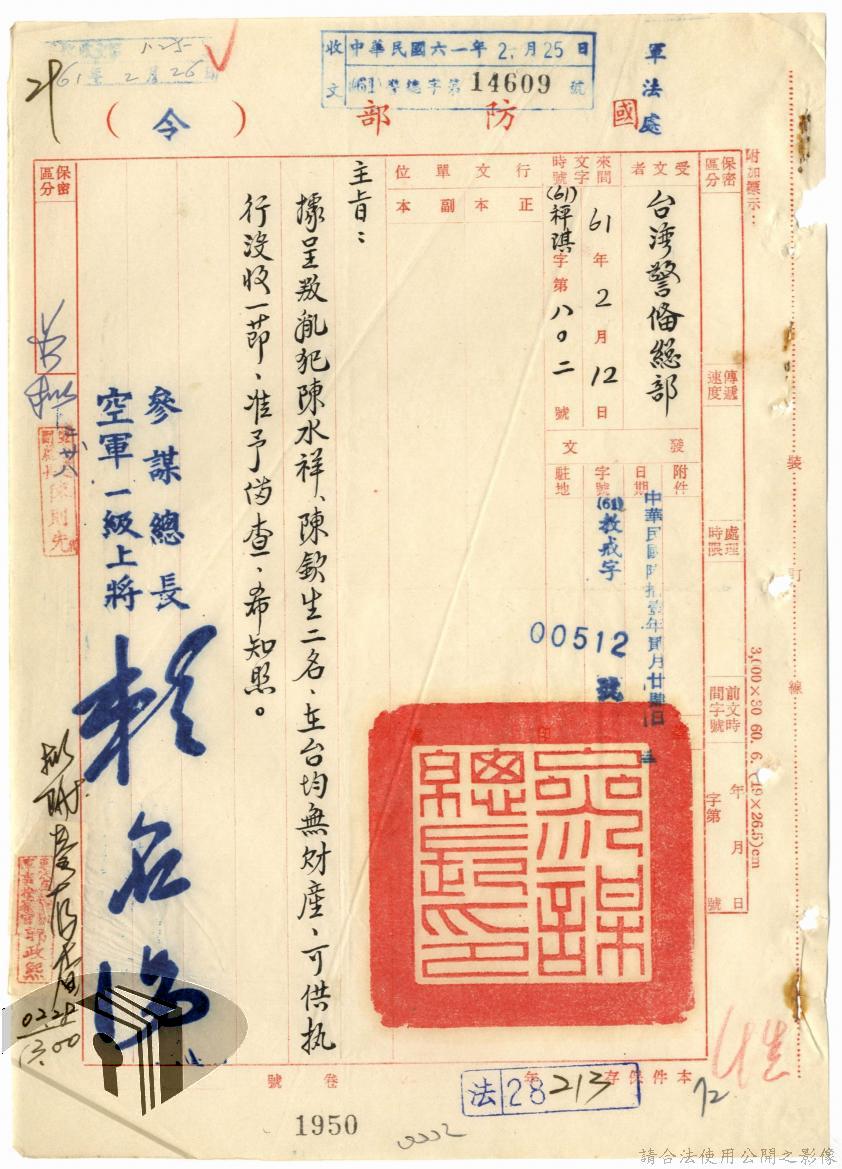 軍法處
收文 中華民國六一年2月25日
(61)警總字第14609號
61年2月26
國防部(令)
附加標示：
保密區分
傳遞速度
處理時限
前文時間字號 年月日 字第號
受文者 台湾警俻總部
來文時間字號 61年2月12日
(61)秤琪字第八〇二號
發文
附件
日期 中華民國陸拾壹年貳月廿肆日
字號 (61)教戒字00512號
駐地
行文單位
正本
副本
保密區分
主旨：
據呈叛亂犯陳水祥、陳欽生二名、在台均無財產、可供执
行沒收一節、准予俻查、希知照。
參謀總長
空軍一級上將
賴名湯
參謀總長印
裝訂線
3,000×30 60.6.(19×26.5)cm
0228
13.00
本件保存年
卷號
法28 213
72
1950
0332
請合法使用公開之影像